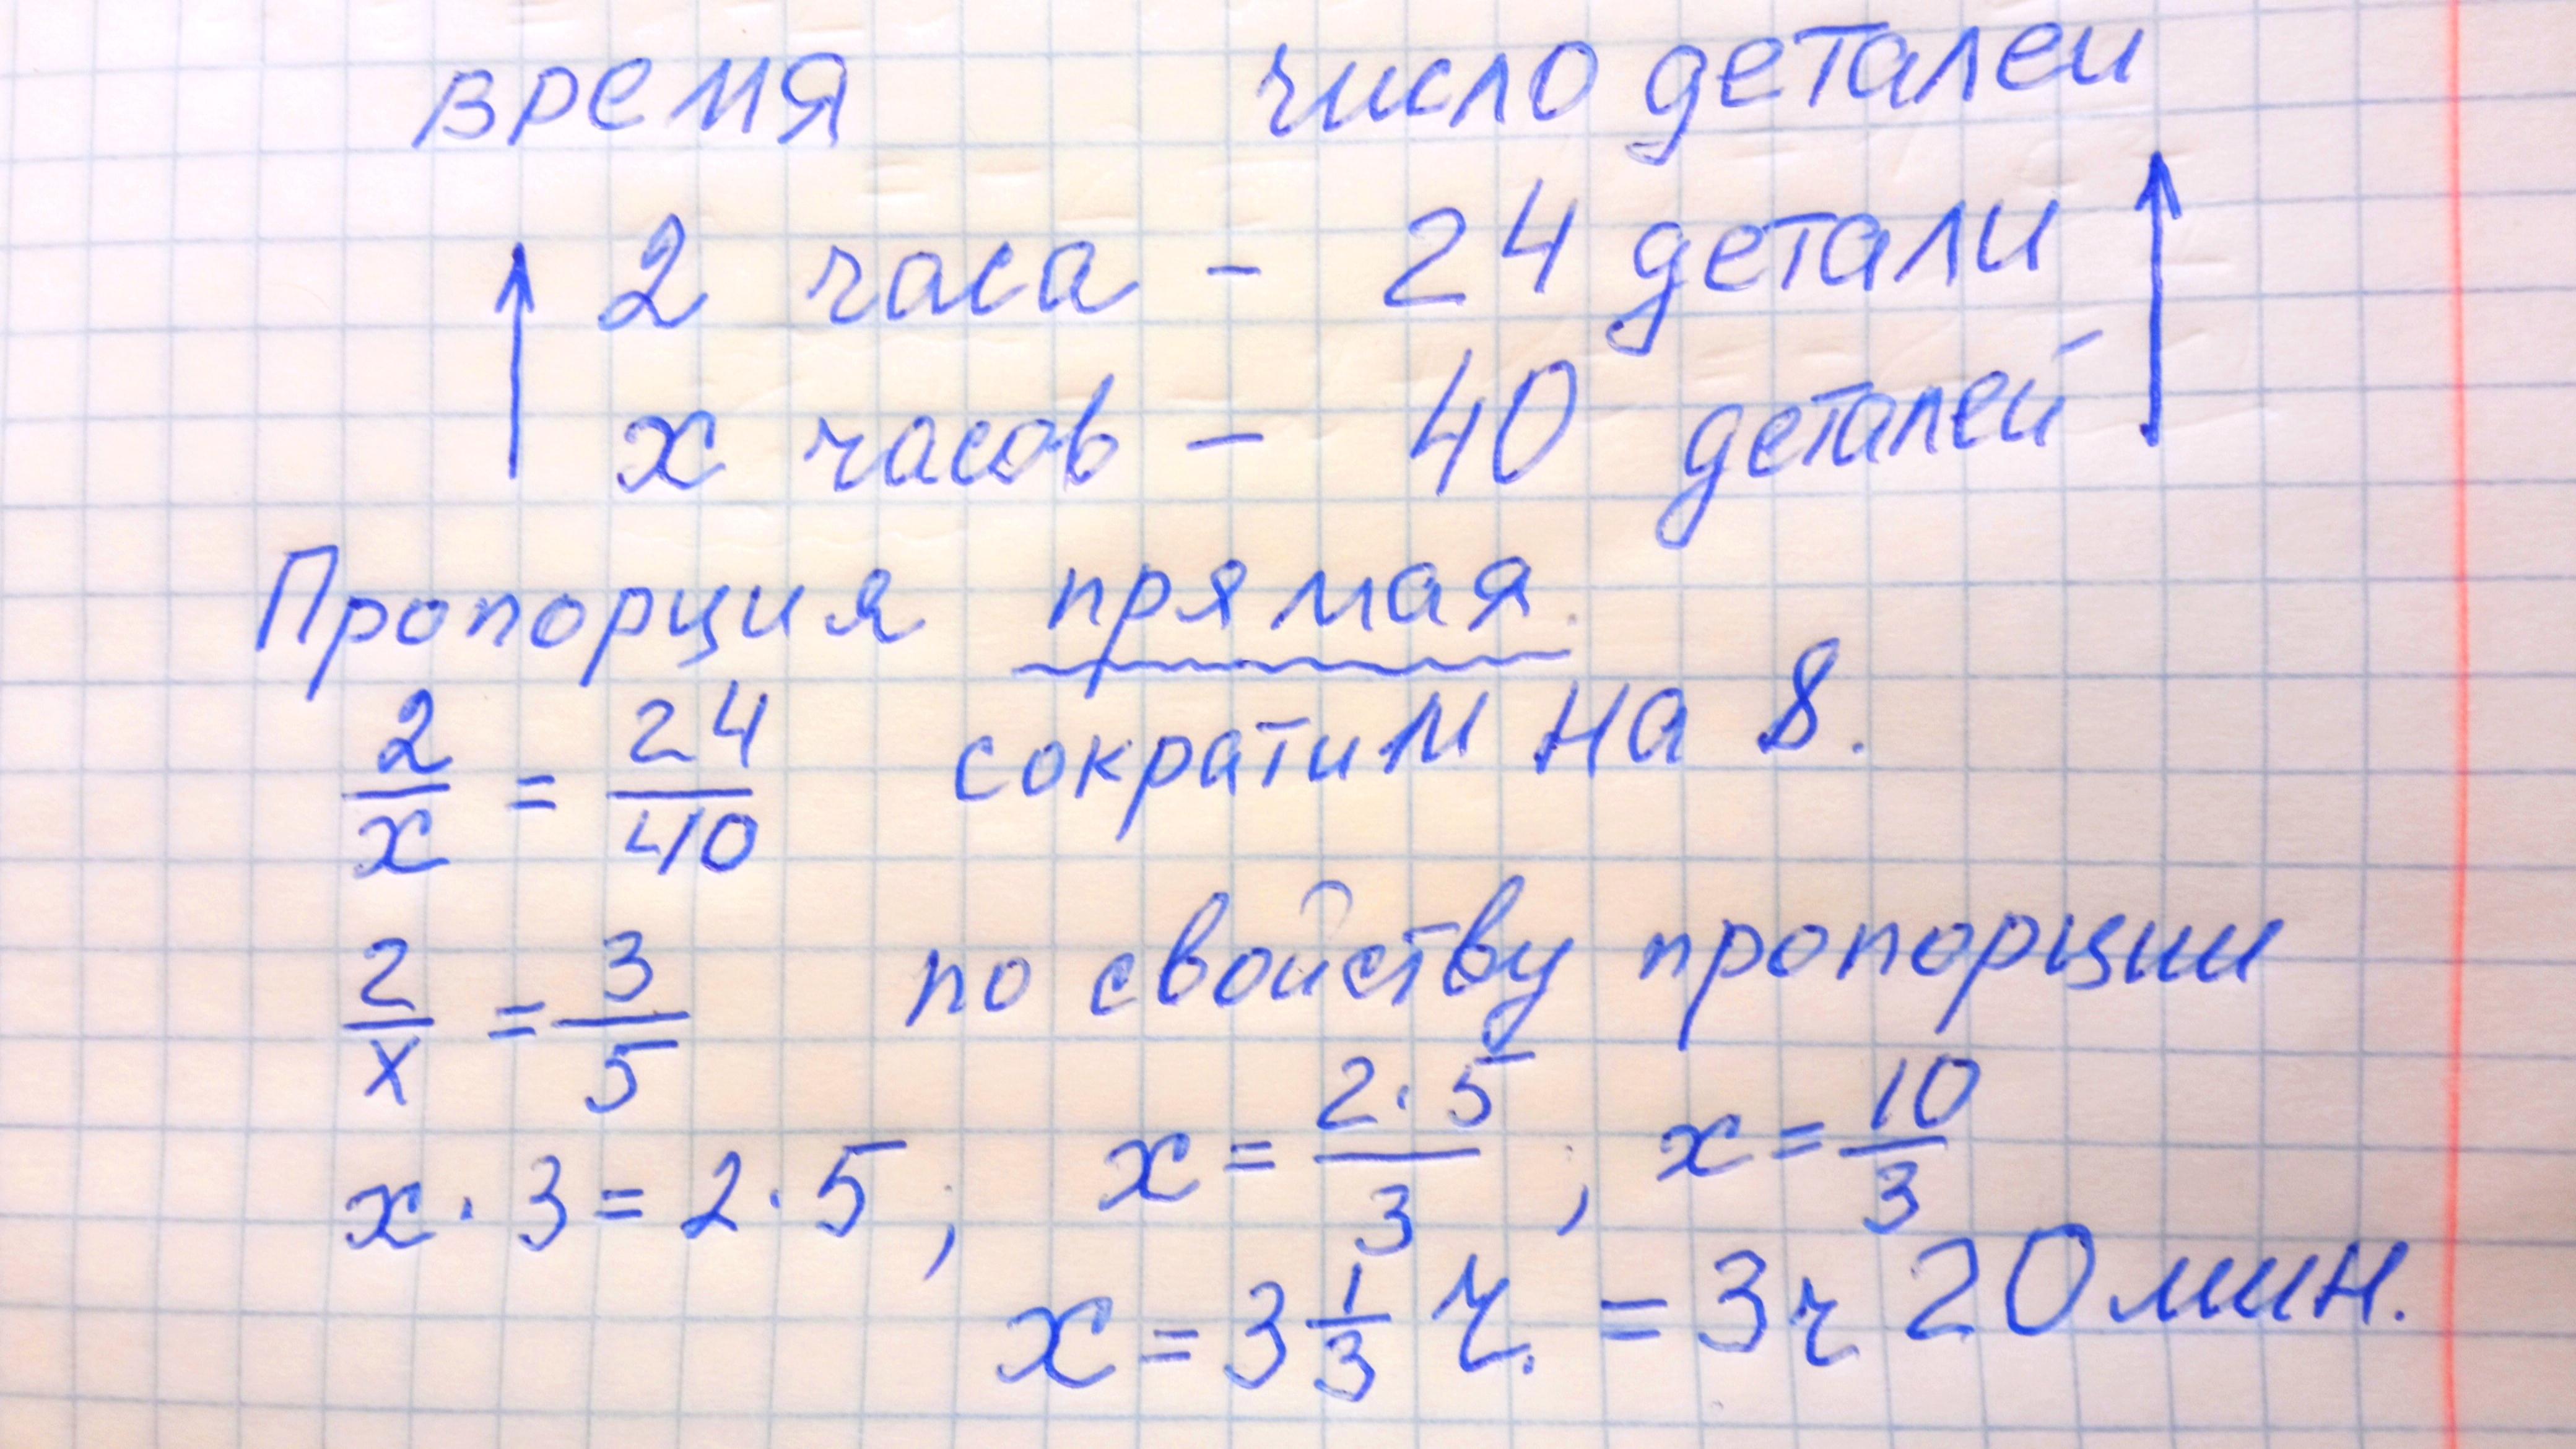 время число деталей
2 часа - 24 детали
x часов - 40 деталей
Пропорция прямая.
2/x = 24/40 сократим на 8.
2/x = 3/5 по свойству пропорции
x · 3 = 2 · 5 ; x = 2·5/3 ; x = 10/3
x = 3 1/3 ч. = 3 ч 20 мин.